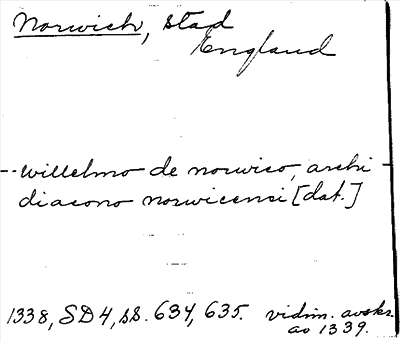 Norwich, stad
England
-- willelmo de norwico, archi
diacono norwicensi [dat.]
1338, SD4, ss. 634, 635. vidim. avskr.
av 1339.